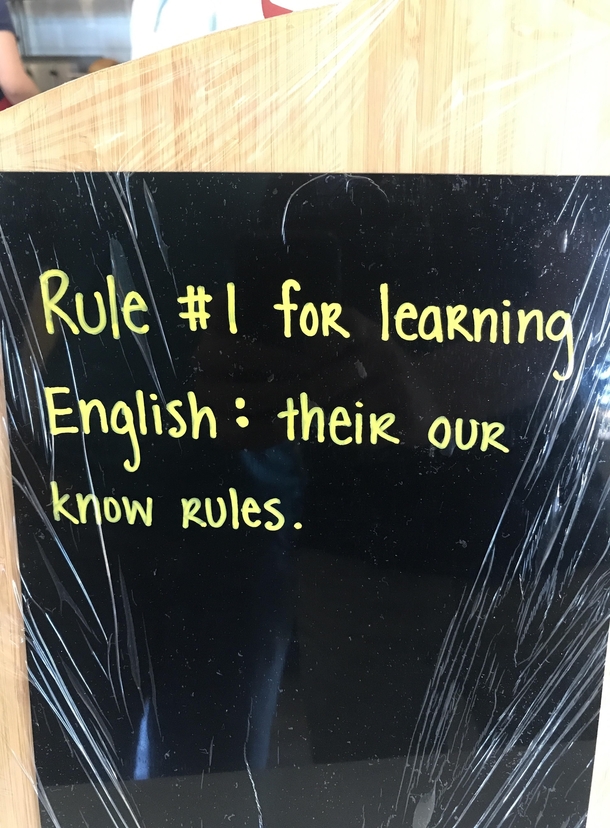 Rule #1 for learning
English: their our
know rules.